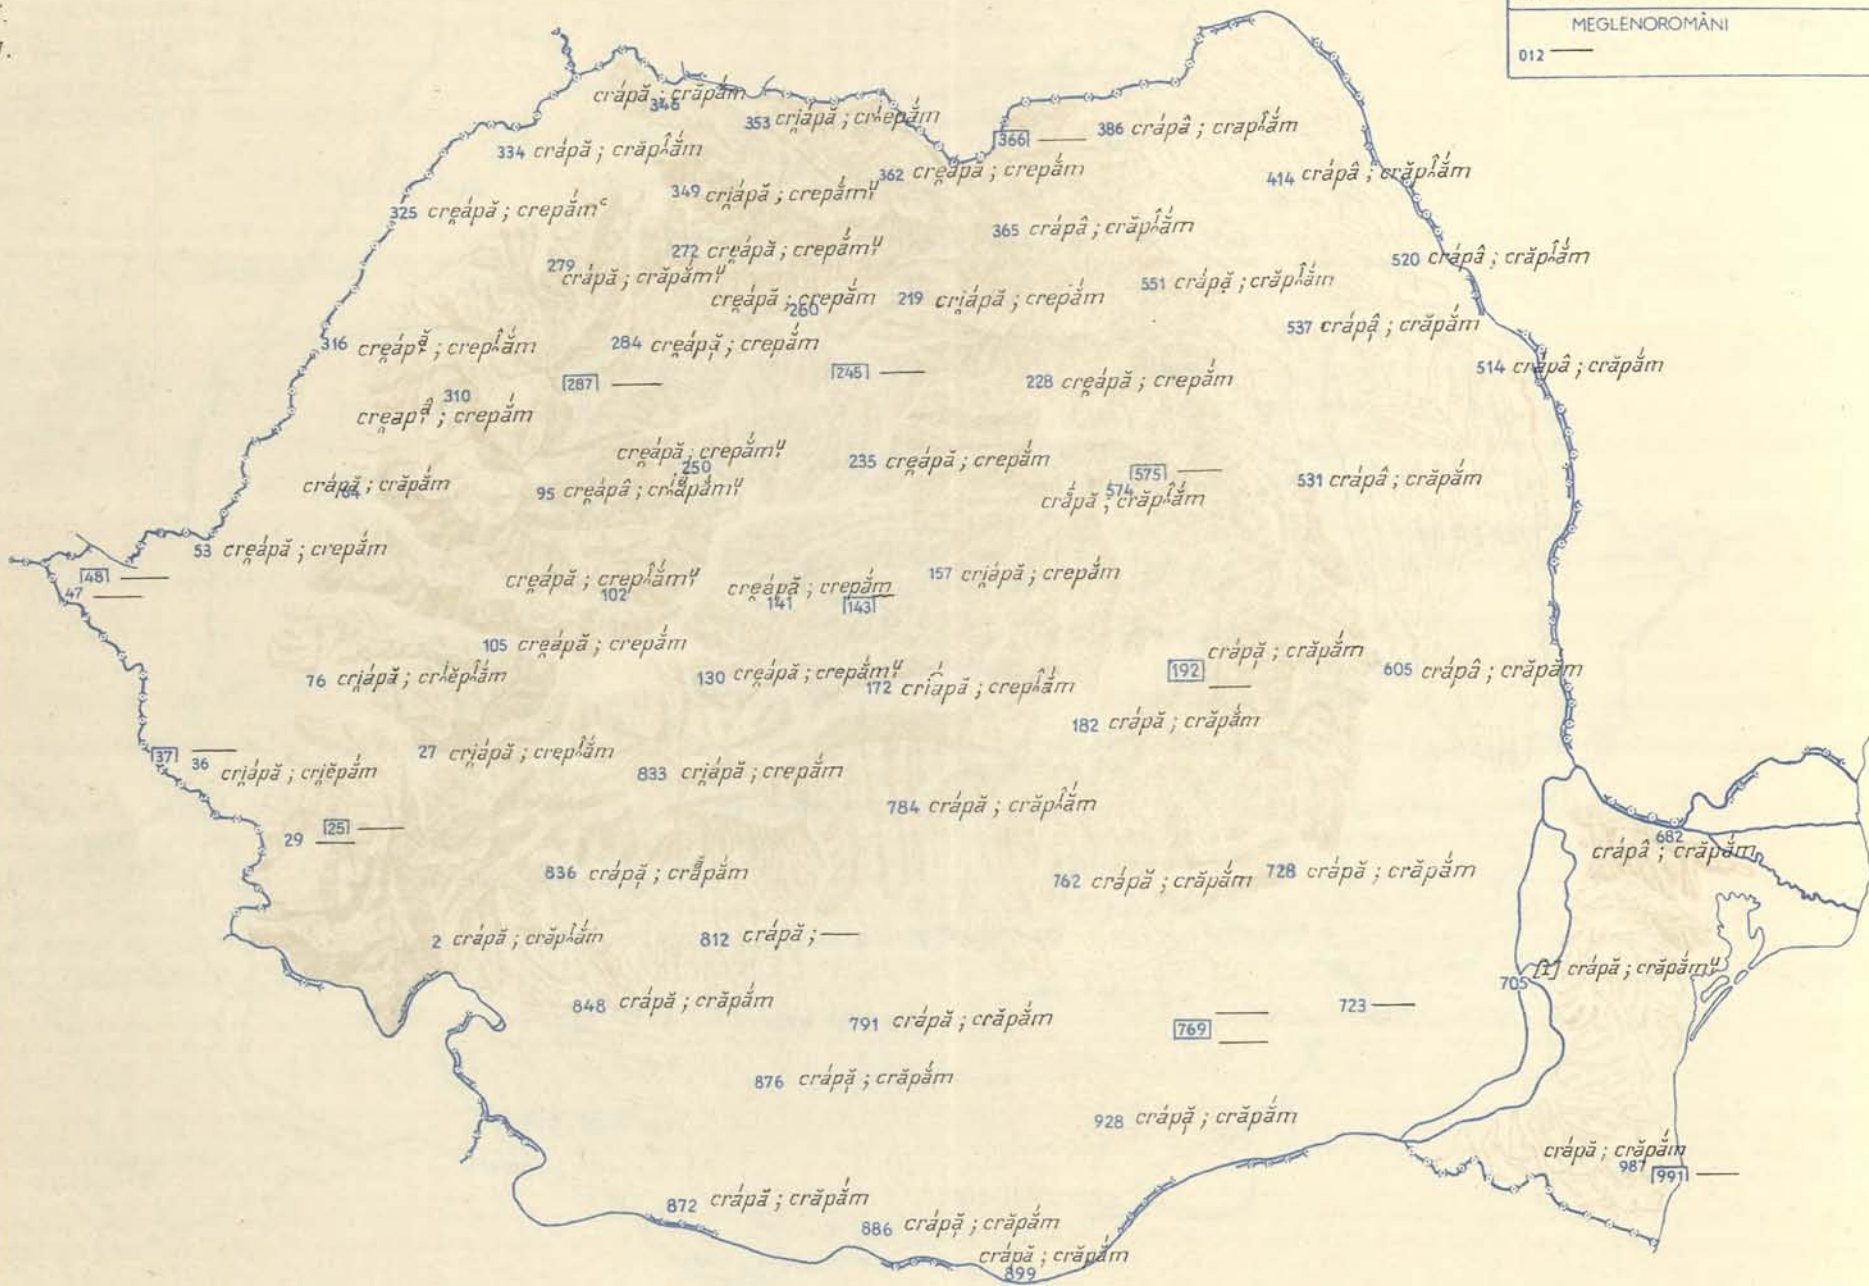 MEGLENOROMÂNI
012 —
crápă ; crăpắm
346
353 cri̯ápă ; crʌepắm
366 —
386 crápâ ; crapʌẫm
334 crápă ; crăpʌẫm
362 cre̯ápă ; crepắm
414 crápâ ; crăpʌẫm
349 cri̯ápă ; crepắmᵘ̯
325 cre̯ápă ; crepắmᶜ
365 crápâ ; crăpʌẫm
272 cre̯ápă ; crepắmᵘ̯
520 crápâ ; crăpʌẫm
279 crápă ; crăpắmᵘ̯
551 crápă ; crăpʌẫm
cre̯ápă ; crepắm
260
219 cri̯ápă ; crepắm
537 crápậ ; crăpắm
316 cre̯ápă ; crepʌẫm
284 cre̯ápă ; crepắm
514 crápâ ; crăpắm
287 —
245 —
228 cre̯ápă ; crepắm
310
cre̯apâ ; crepắm
cre̯ápă ; crepắmᵘ̯
250
235 cre̯ápă ; crepắm
575 —
531 crápâ ; crăpắm
crápă ; crăpắm
64
95 cre̯ápâ ; crʌăpắmᵘ̯
574
crápă ; crăpʌẫm
53 cre̯ápă ; crepắm
48 —
47 —
cre̯ápă ; crepʌẫmᵘ̯
102
cre̯ápă ; crepắm
141
143 —
157 cri̯ápă ; crepắm
105 cre̯ápă ; crepắm
crápă ; crăpắm
192 —
605 crápâ ; crăpắm
76 cri̯ápă ; crʌĕpʌẫm
130 cre̯ápă ; crepắmᵘ̯
172 cri̯ápă ; crepʌẫm
182 crápă ; crăpắm
37 —
36 cri̯ápă ; cri̯ĕpắm
27 cri̯ápă ; crepʌẫm
833 cri̯ápă ; crepắm
784 crápă ; crăpʌẫm
25 —
29 —
682
crápâ ; crăpắm
836 crápă ; crăpắm
762 crápă ; crăpắm
728 crápă ; crăpắm
2 crápă ; crăpʌẫm
812 crápă ; —
705 [I] crápă ; crăpắmᵘ̯
848 crápă ; crăpắm
791 crápă ; crăpắm
769 —
723 —
876 crápă ; crăpắm
928 crápă ; crăpắm
crápă ; crăpắm
987
991 —
872 crápă ; crăpắm
886 crápă ; crăpắm
crápă ; crăpắm
899